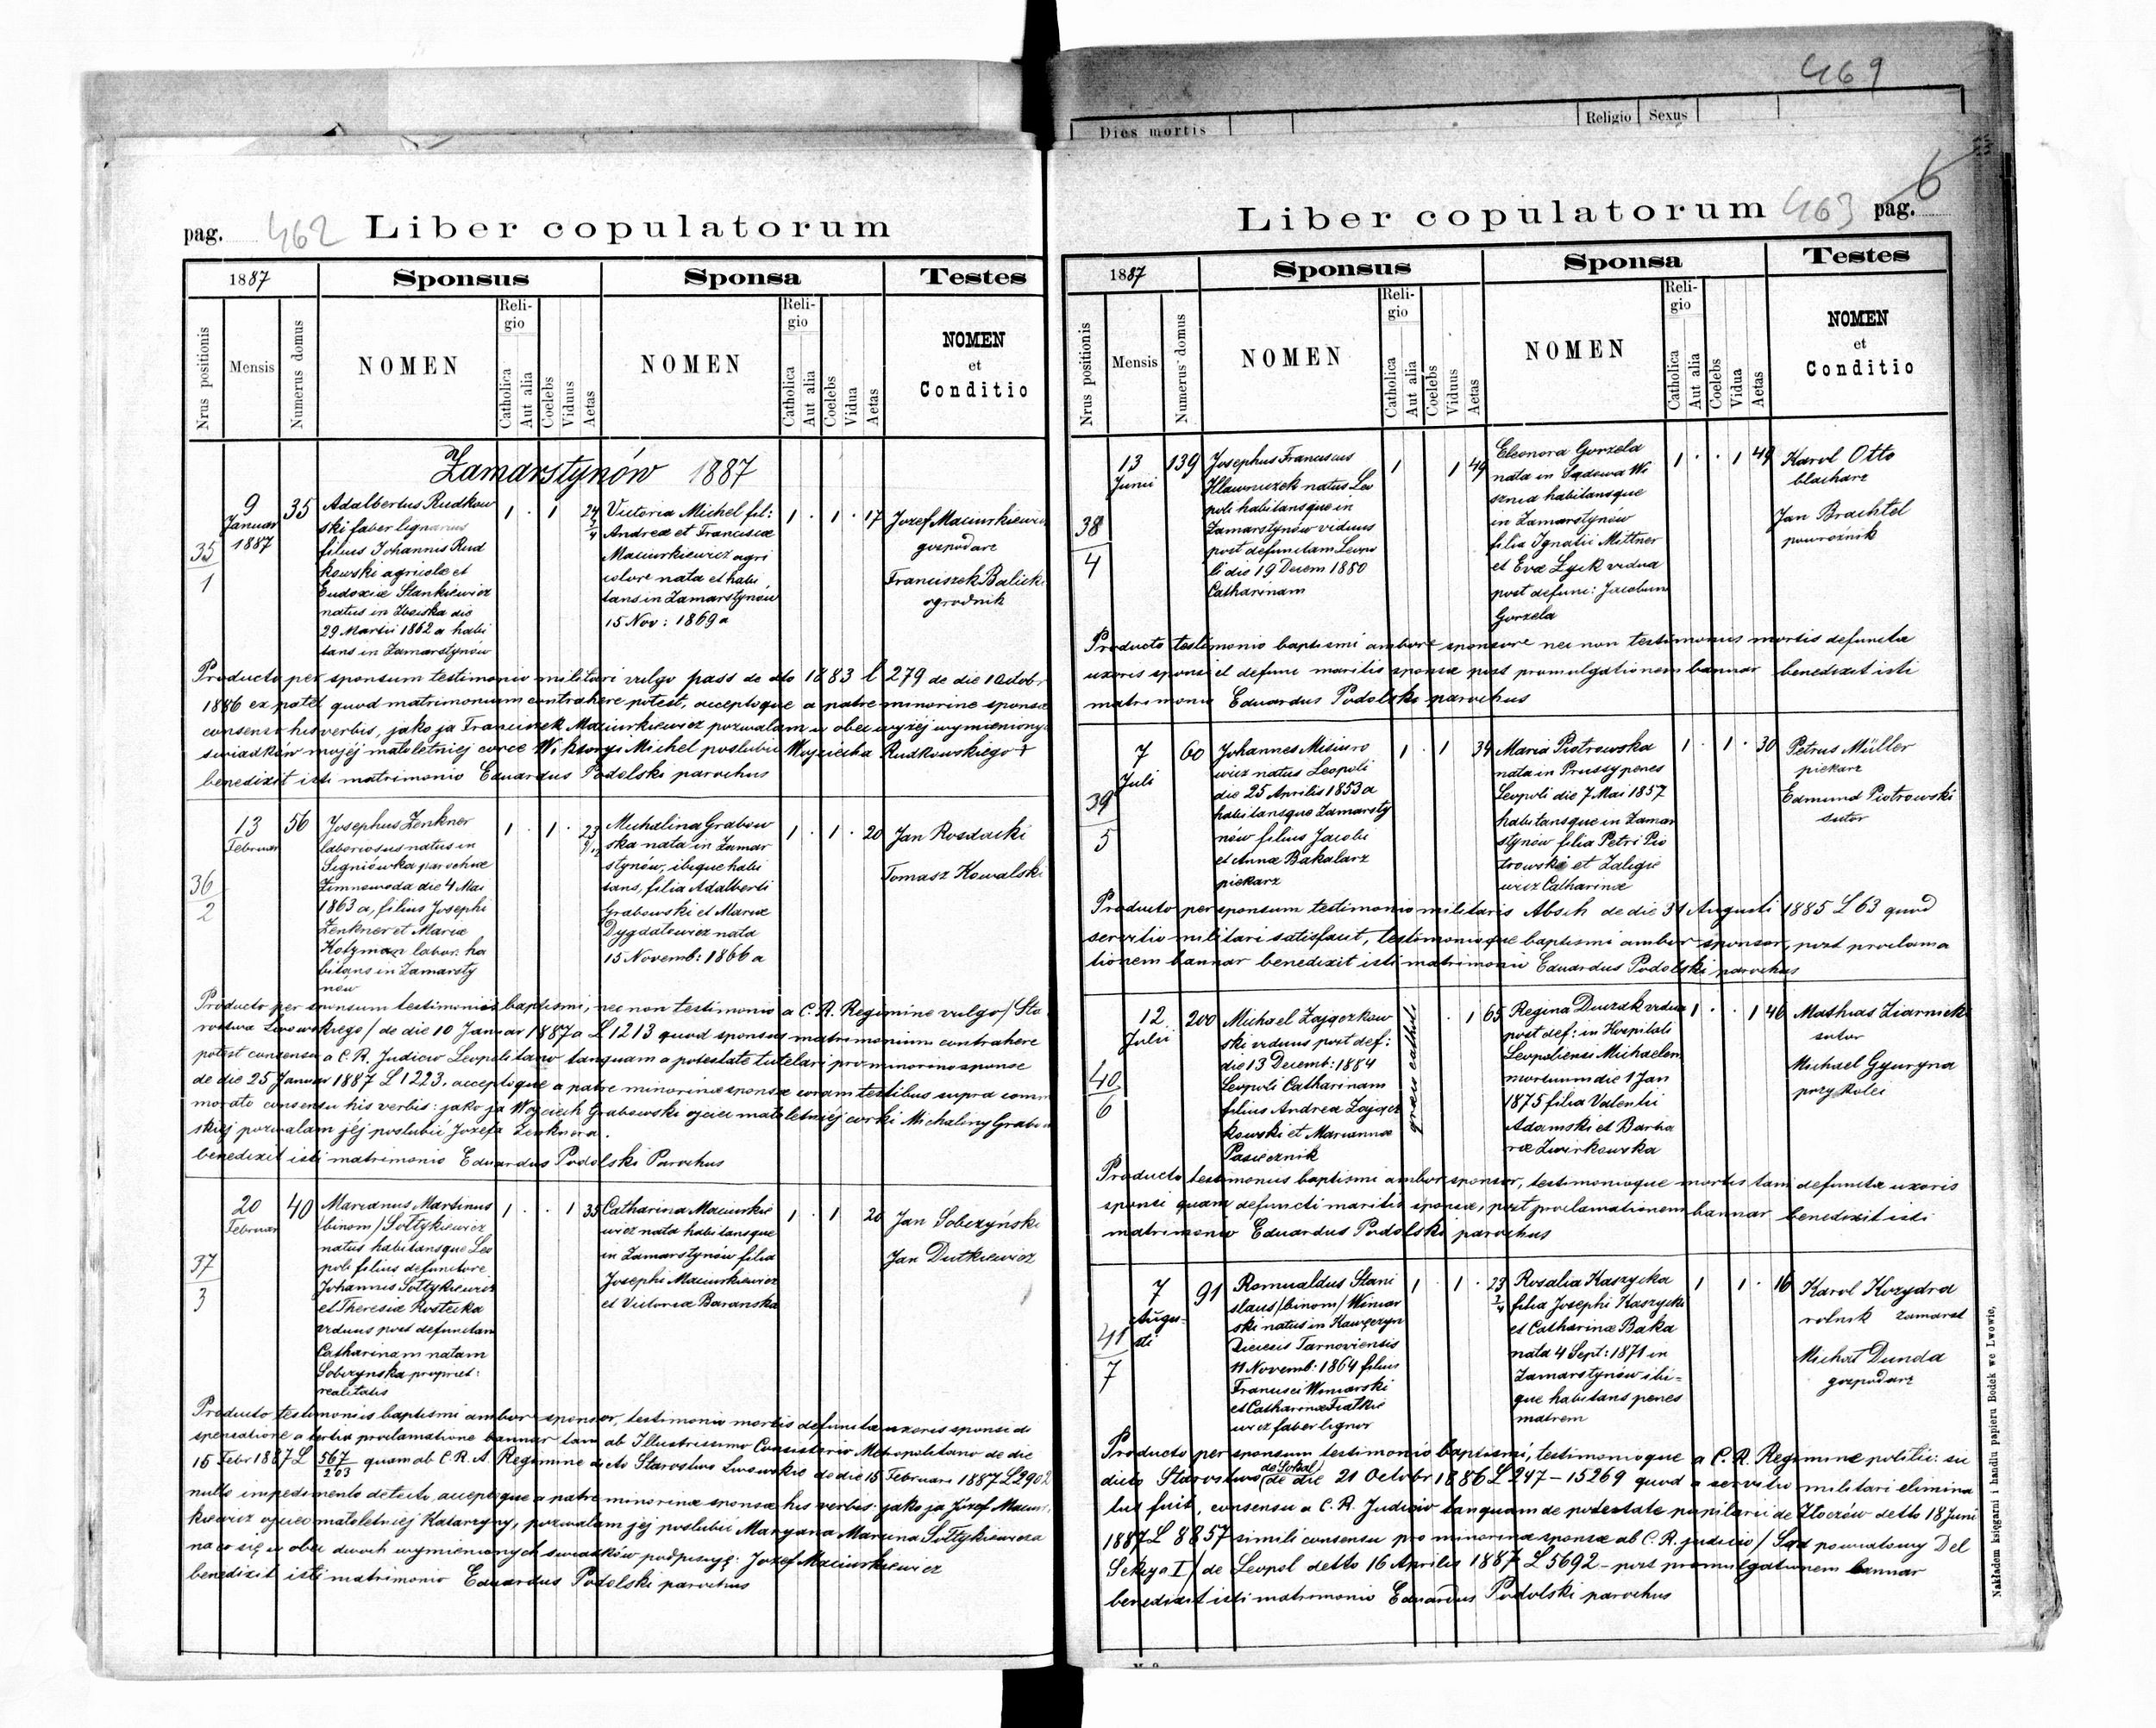 469
Dies mortis
Religio
Sexus
pag. 462
Liber copulatorum
1887
Sponsus
Sponsa
Testes
Nrus positionis
Mensis
Numerus domus
NOMEN
Religio
Catholica
Aut alia
Coelebs
Viduus
Aetas
NOMEN
Religio
Catholica
Aut alia
Coelebs
Vidua
Aetas
NOMEN
et
Conditio
Zamarstynów 1887
35
1
9
Januar
1887
35
Adalbertus Rudkow
ski faber lignarius
filius Johannis Rud
kowski agricolæ et
Eudoxiæ Stankiewicz
natus in Zboiska die
29 Martii 1862 a habi
tans in Zamarstynów
1 . 1
24
3/4
Victoria Michel fil:
Andreæ et Franciscæ
Maciurkiewicz agri
colore nata et habi
tans in Zamarstynów
15 Nov: 1869 a
1 . 1 . 17
Jozef Maciurkiewicz
gospodarz
Franciszek Balicki
ogrodnik
Producto per sponsum testimonio militari vulgo pass de dto 1883 L 279 de die 1 Octobr
1886 ex patet quod matrimonium contrahere potest, acceptoque a patre minorine sponsæ
consensu his verbis, jako ja Franciszek Maciurkiewicz pozwalam w obec wyżej wymienionych
swiadków mojéj małoletniej corce Wiktoryi Michel poslubić Wojciecha Rudkowskiego
benedixit isti matrimonio Eduardus Podolski parochus
36
2
13
Februar
56
Josephus Zenkner
laboriosus natus in
Signiówka parochiæ
Zimnowoda die 4 Mai
1863 a, filius Josephi
Zenkner et Mariæ
Kotzman labor. ha
bitans in Zamarsty
now
1 . 1 . 23
9/12
Michalina Grabow
ska nata in Zamar
stynów, ibique habi
tans, filia Adalberti
Grabowski et Mariæ
Dygdalewicz nata
15 Novemb: 1866 a
1 . 1 . 20
Jan Rozdacki
Tomasz Kowalski
Producto per sponsum testimonio baptismi, nec non testimonio a C. R. Regimine vulgo / Sta
rostwa Lwowskiego / de die 10 Januar 1887 a L 1213 quod sponsus matrimonium contrahere
potest consensu a C. R. Judicio Leopolitano tanquam a potestate tutelari pro minoreno sponse
de die 25 Januar 1887 L 1223. acceptoque a patre minorinæ sponsæ coram testibus supra comm
morato consensu his verbis: jako ja Wojciech Grabowski ojciec małoletniéj corki Michaliny Grabow
skiéj pozwalam jéj poslubić Jozefa Zenknera.
benedixit isti matrimonio Eduardus Podolski Parochus
37
3
20
Februar
40
Marianus Martinus
/binom/ Sołtykiewicz
natus habitansque Leo
poli filius defunctore
Johannis Sołtykiewicz
et Theresiæ Rostecka
viduus post defunctam
Catharinam natam
Sobczynska propriet:
realitatis
1 . . 1 35
Catharina Maciurkie
wicz nata habitansque
in Zamarstynów filia
Josephi Maciurkiewicz
et Victoriæ Baranska
1 . 1 20
Jan Sobczyński
Jan Dutkiewicz
Producto testimoniis baptismi ambor sponsor, testimonio mortis defunctæ uxoris sponsi di
spensatione a tertia proclamatione bannor tam ab Illustrissimo Consistorio Metropolitano de die
15 Febr 1887 L 567/203 quam ab C. R. A. Regimine dicto Starostwo Lwowskie de die 15 Februari 1887 L 2902
nullo impedimento detecto, acceptoque a patre minorinæ sponsæ his verbis: jako ja Józef Maciur
kiewicz ojciec małoletniéj Katarzyny, pozwalam jéj poslubić Maryana Marcina Sołtykiewicza
na co się w obec dwoch wymienionych swiadków podpisuję: Jozef Maciurkiewicz
benedixit isti matrimonio Eduardus Podolski parochus
Liber copulatorum
463
pag. 6
1887
Sponsus
Sponsa
Testes
Nrus positionis
Mensis
Numerus domus
NOMEN
Religio
Catholica
Aut alia
Coelebs
Viduus
Aetas
NOMEN
Religio
Catholica
Aut alia
Coelebs
Vidua
Aetas
NOMEN
et
Conditio
38
4
13
Junii
139
Josephus Franciscus
Hlawniczek natus Leo
poli habitansque in
Zamarstynów viduus
post defunctam Leopo
li die 19 Decem 1880
Catharinam
1 1 49
Eleonora Gorzela
nata in Sądowa Wi
sznia habitansque
in Zamarstynów
filia Ignatii Mittner
et Evæ Lyck vidua
post defunc: Jacobum
Gorzela
1 . . 1 49
Karol Otto
blacharz
Jan Brachtel
powroźnik
Producto testimonio baptismi ambore sponsore nec non testimonius mortis defunctæ
uxoris sponsi et defunc maritis sponsæ post promulgationem bannor benedixit isti
matrimonio Eduardus Podolski parochus
39
5
7
Juli
60
Johannes Misiuro
wicz natus Leopoli
die 25 Aprilis 1853 a
habitansque Zamarsty
nów filius Jacobi
et Annæ Bakalarz
piekarz
1 . 1 34
Maria Piotrowska
nata in Prussy penes
Leopoli die 7 Mai 1857
habitansque in Zamar
stynów filia Petri Pio
trowski et Zaligie
wicz Catharinæ
1 . 1 . 30
Petrus Müller
piekarz
Edmund Piotrowski
sutor
Producto per sponsum testimonio militaris Absch de die 31 Augusti 1885 L 63 quod
servitio militari satisfacit, testimonioque baptismi ambor sponsor, post proclama
tionem bannor benedixit isti matrimonio Eduardus Podolski parochus
40
6
12
Julii
200
Michael Zajączkow
ski viduus post def:
die 13 Decemb: 1884
Leopoli Catharinam
filius Andrea Zającz
kowski et Mariannæ
Pasiecznik
græco cathol:
. 1 65
Regina Dwizak vidua
post def: in Hospitali
Leopoliensi Michaelem
mortuum die 1 Jan
1875 filia Valentii
Adamski et Barba
ræ Zwirkowska
1 . . 1 46
Mathias Ziarnick
sutor
Michael Gyuryna
przy kolei
Producto testimoniis baptismi ambor sponsor, testimonioque mortis tam defunctæ uxoris
sponsi quam defuncti maritis sponsæ, post proclamationem bannor benedixit isti
matrimonio Eduardus Podolski parochus
41
7
7
Augu-
sti
91
Romualdus Stani
slaus /binom/ Winiar
ski natus in Kawęczyn
Diecesis Tarnoviensis
11 Novemb: 1864 filius
Francisci Winiarski
et Catharinæ Fiatkie
wicz faber lignor
1 . 1 . 23
3/4
Rosalia Kaszycka
filia Josephi Kaszycki
et Catharinæ Baka
nata 4 Sept: 1871 in
Zamarstynów ibi-
que habitans penes
matrem
1 1 . 16
Karol Kozydra
rolnik zamarst
Michał Dunda
gospodarz
Producto per sponsum testimonio baptismi, testimonioque a C. R. Regimine politic: sic
dicto Starostwo (de Sokal) de die 21 Octobr 1886 L 247-15269 quod a servitio militari elimina
tus fuit, consensu a C. R. Judicio tanquam de potestate pupilarii de Złoczów detto 18 Juni
1887 L 8857 simili consensu pro minorina sponsa ab C. R. judicio / Sąd powiatowy Del
Sekcya I / de Leopol detto 16 Aprilis 1887 L 5692 - post promulgationem bannor
benedixit isti matrimonio Eduardus Podolski parochus
Nakładem księgarni i handlu papieru Bodek we Lwowie.